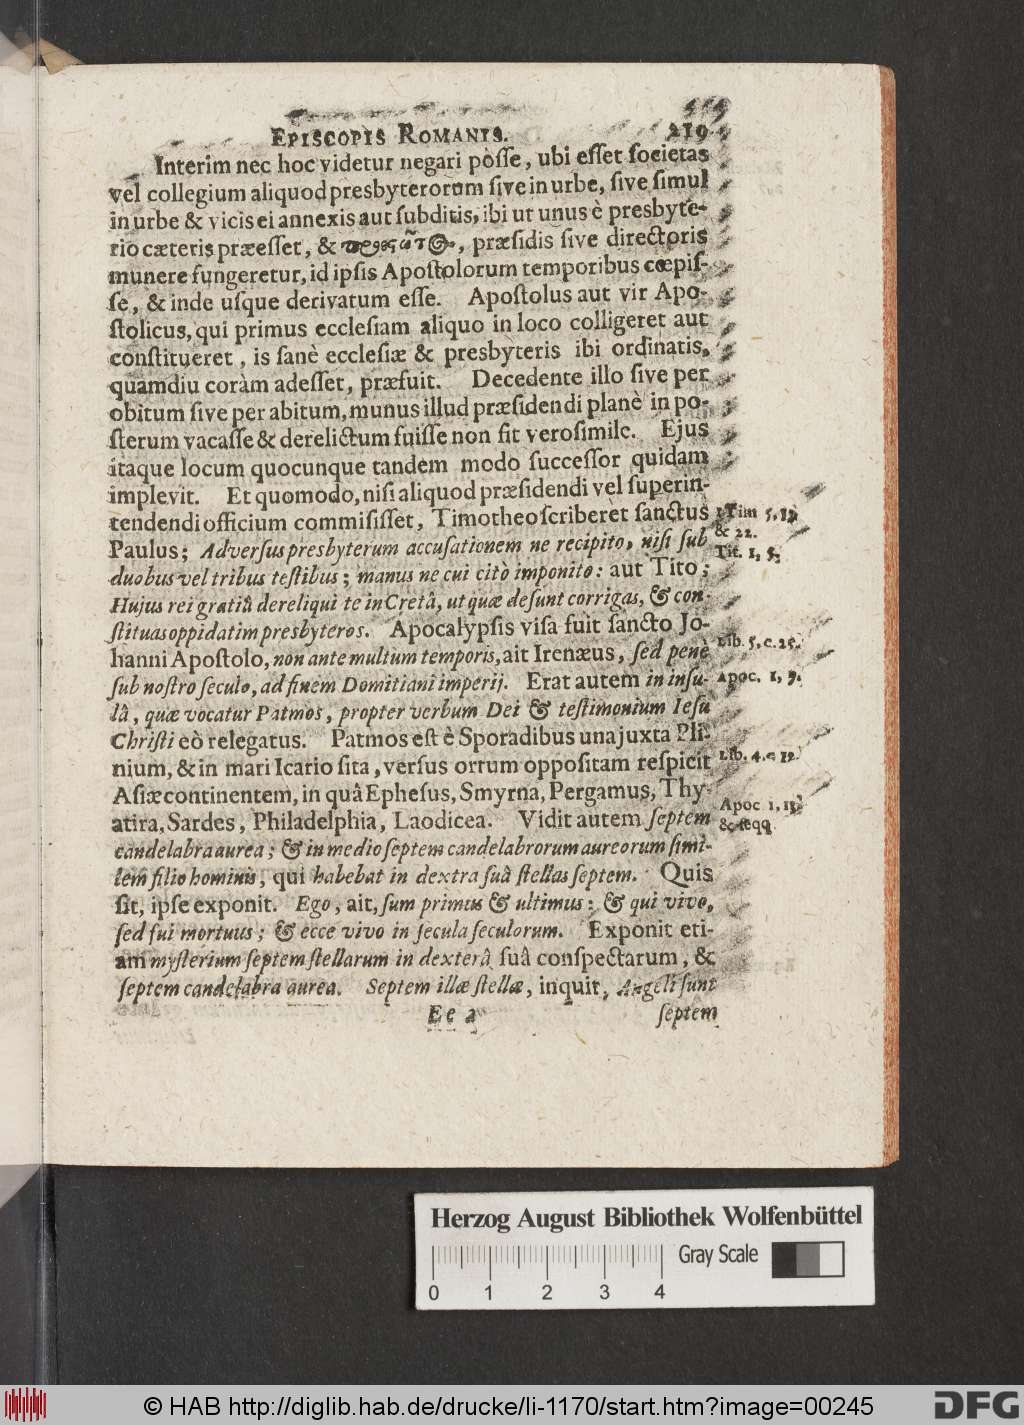 EPISCOPIS ROMANIS. 219
Interim nec hoc videtur negari pòſſe, ubi eſſet ſocietas
vel collegium aliquod presbyterorum ſive in urbe, ſive ſimul
in urbe & vicis ei annexis aut ſubditis, ibi ut unus è presbyte-
rio cæteris præeſſet, & προεςῶτος, præſidis ſive directoris
munere fungeretur, id ipſis Apoſtolorum temporibus cœpiſ-
ſe, & inde uſque derivatum eſſe. Apoſtolus aut vir Apo-
ſtolicus, qui primus eccleſiam aliquo in loco colligeret aut
conſtitueret, is ſanè eccleſiæ & presbyteris ibi ordinatis,
quamdiu coràm adeſſet, præfuit. Decedente illo ſive per
obitum ſive per abitum, munus illud præſidendi planè in po-
ſterum vacaſſe & derelictum fuiſſe non fit veroſimile. Ejus
itaque locum quocunque tandem modo ſucceſſor quidam
implevit. Et quomodo, niſi aliquod præſidendi vel ſuperin-
tendendi officium commiſiſſet, Timotheo ſcriberet ſanctus
Paulus; Adverſus presbyterum accuſationem ne recipito, niſi ſub
duobus vel tribus teſtibus; manus ne cui citò imponito: aut Tito;
Hujus rei gratiâ dereliqui te in Cretâ, ut quæ deſunt corrigas, & con-
ſtituas oppidatim presbyteros. Apocalypſis viſa fuit ſancto Jo-
hanni Apoſtolo, non ante multum temporis, ait Irenæus, ſed penè
ſub noſtro ſeculo, ad finem Domitiani imperij. Erat autem in inſu-
lâ, quæ vocatur Patmos, propter verbum Dei & teſtimonium Ieſu
Chriſti eò relegatus. Patmos eſt è Sporadibus una juxta Pli-
nium, & in mari Icario ſita, verſus ortum oppoſitam reſpicit
Aſiæ continentem, in quâ Epheſus, Smyrna, Pergamus, Thy-
atira, Sardes, Philadelphia, Laodicea. Vidit autem ſeptem
candelabra aurea; & in medio ſeptem candelabrorum aureorum ſimi-
lem filio hominis, qui habebat in dextra ſuâ ſtellas ſeptem. Quis
ſit, ipſe exponit. Ego, ait, ſum primus & ultimus: & qui vivo,
ſed fui mortuus; & ecce vivo in ſecula ſeculorum. Exponit eti-
am myſterium ſeptem ſtellarum in dexterâ ſuâ conſpectarum, &
ſeptem candelabra aurea. Septem illæ ſtellæ, inquit, Angeli ſunt
E e 2 ſeptem
1 Tim 5, 19
& 22.
Tit. 1, 5.
Lib. 5, c. 25.
Apoc. 1, 9.
Lib. 4. c 12.
Apoc 1, 13
& ſeqq
Herzog August Bibliothek Wolfenbüttel
Gray Scale
0 1 2 3 4
© HAB http://diglib.hab.de/drucke/li-1170/start.htm?image=00245
DFG